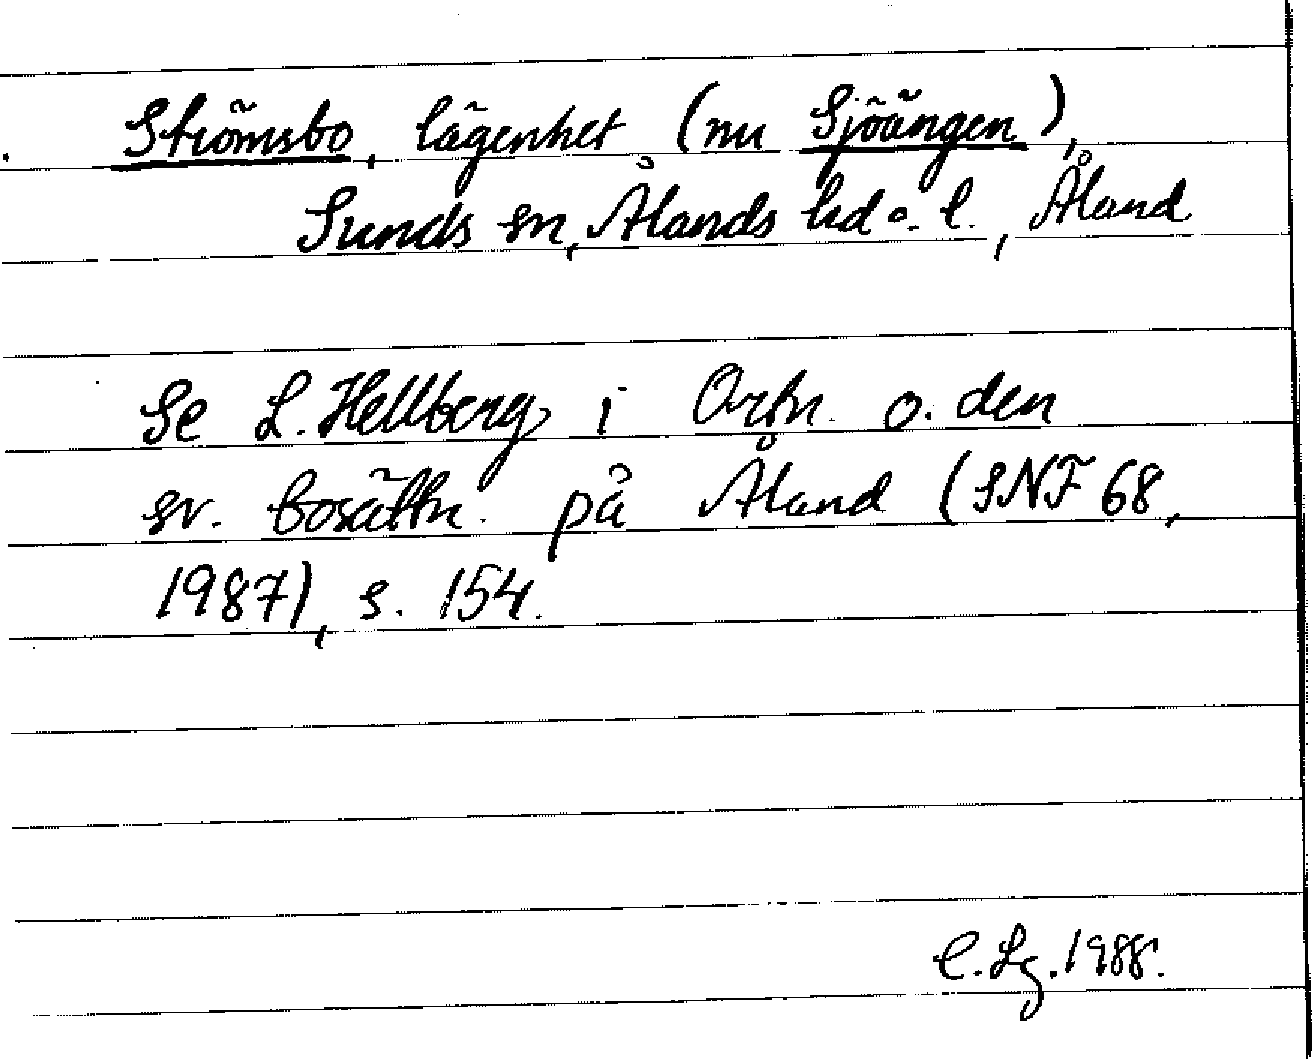 Strömsbo, lägenhet (nu Sjöängen),
Sunds sn, Ålands hd o. l., Åland
Se L. Hellberg i Ortn. o. den
sv. bosättn. på Åland (SNF 68,
1987), s. 154.
C. Lg. 1988.